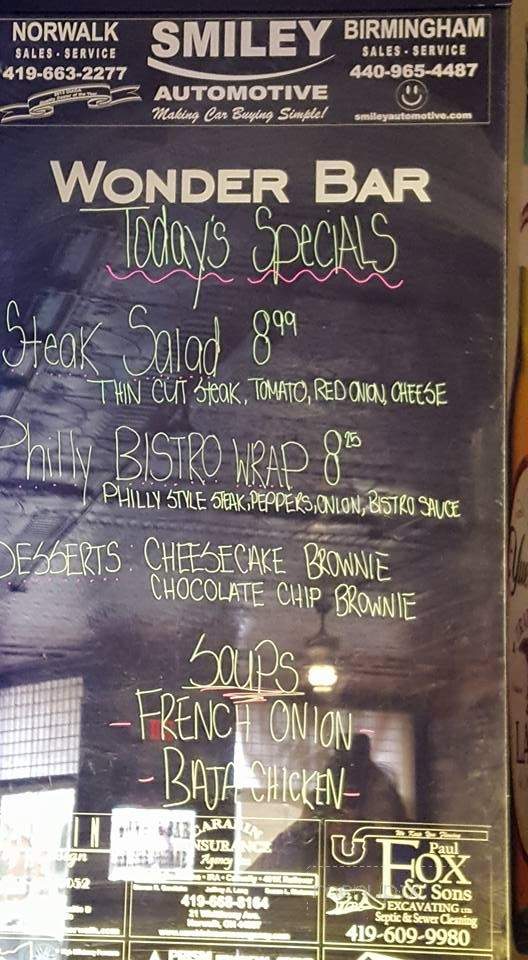 NORWALK
SALES · SERVICE
419-663-2277
SMILEY
AUTOMOTIVE
Making Car Buying Simple!
BIRMINGHAM
SALES · SERVICE
440-965-4487
smileyautomotive.com
WONDER BAR
Today's SpeciALS
Steak Salad 8⁹⁹
THIN CUT Steak, TOMATO, RED ONION, CHEESE
Philly BISTRO WRAP 8²⁵
PHILLY STYLE STEAK, PEPPERS, ONION, BISTRO SAUCE
DESSERTS: CHEESECAKE BROWNIE
CHOCOLATE CHIP BROWNIE
SOUPS
- FRENCH ONION -
- BAJA CHICKEN -
INSURANCE
Agency
419-668-8164
Paul
FOX
& Sons
EXCAVATING
Septic & Sewer Cleaning
419-609-9980